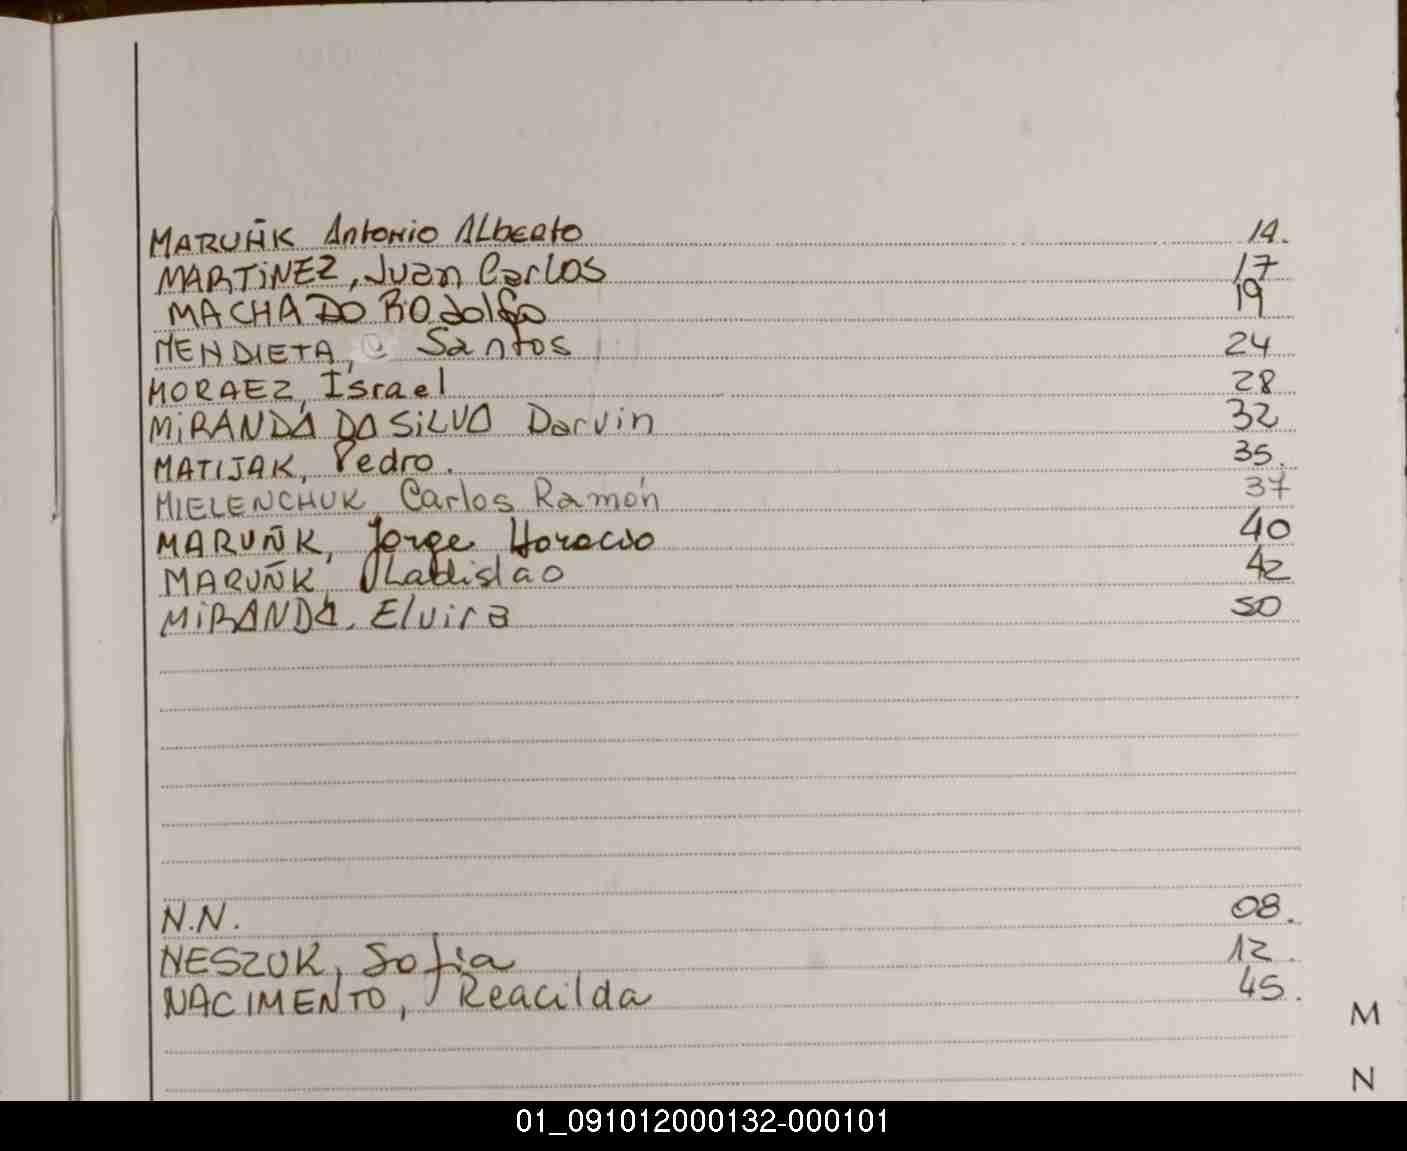 MARUÑK Antonio Alberto 14.
MARTINEZ, Juan Carlos 17
MACHADO Rodolfo 19
MENDIETA, Santos 24
MORAEZ, Israel 28
MIRANDA DA SILVA Darvin 32
MATIJAK, Pedro. 35.
MIELENCHUK Carlos Ramón 37
MARUÑK, Jorge Horacio 40
MARUÑK, Uladislao 42
MIRANDA, Elvira 50
N.N. 08.
NESZUK, Sofia 12.
NACIMENTO, Reacilda 45.
M
N
01_091012000132-000101